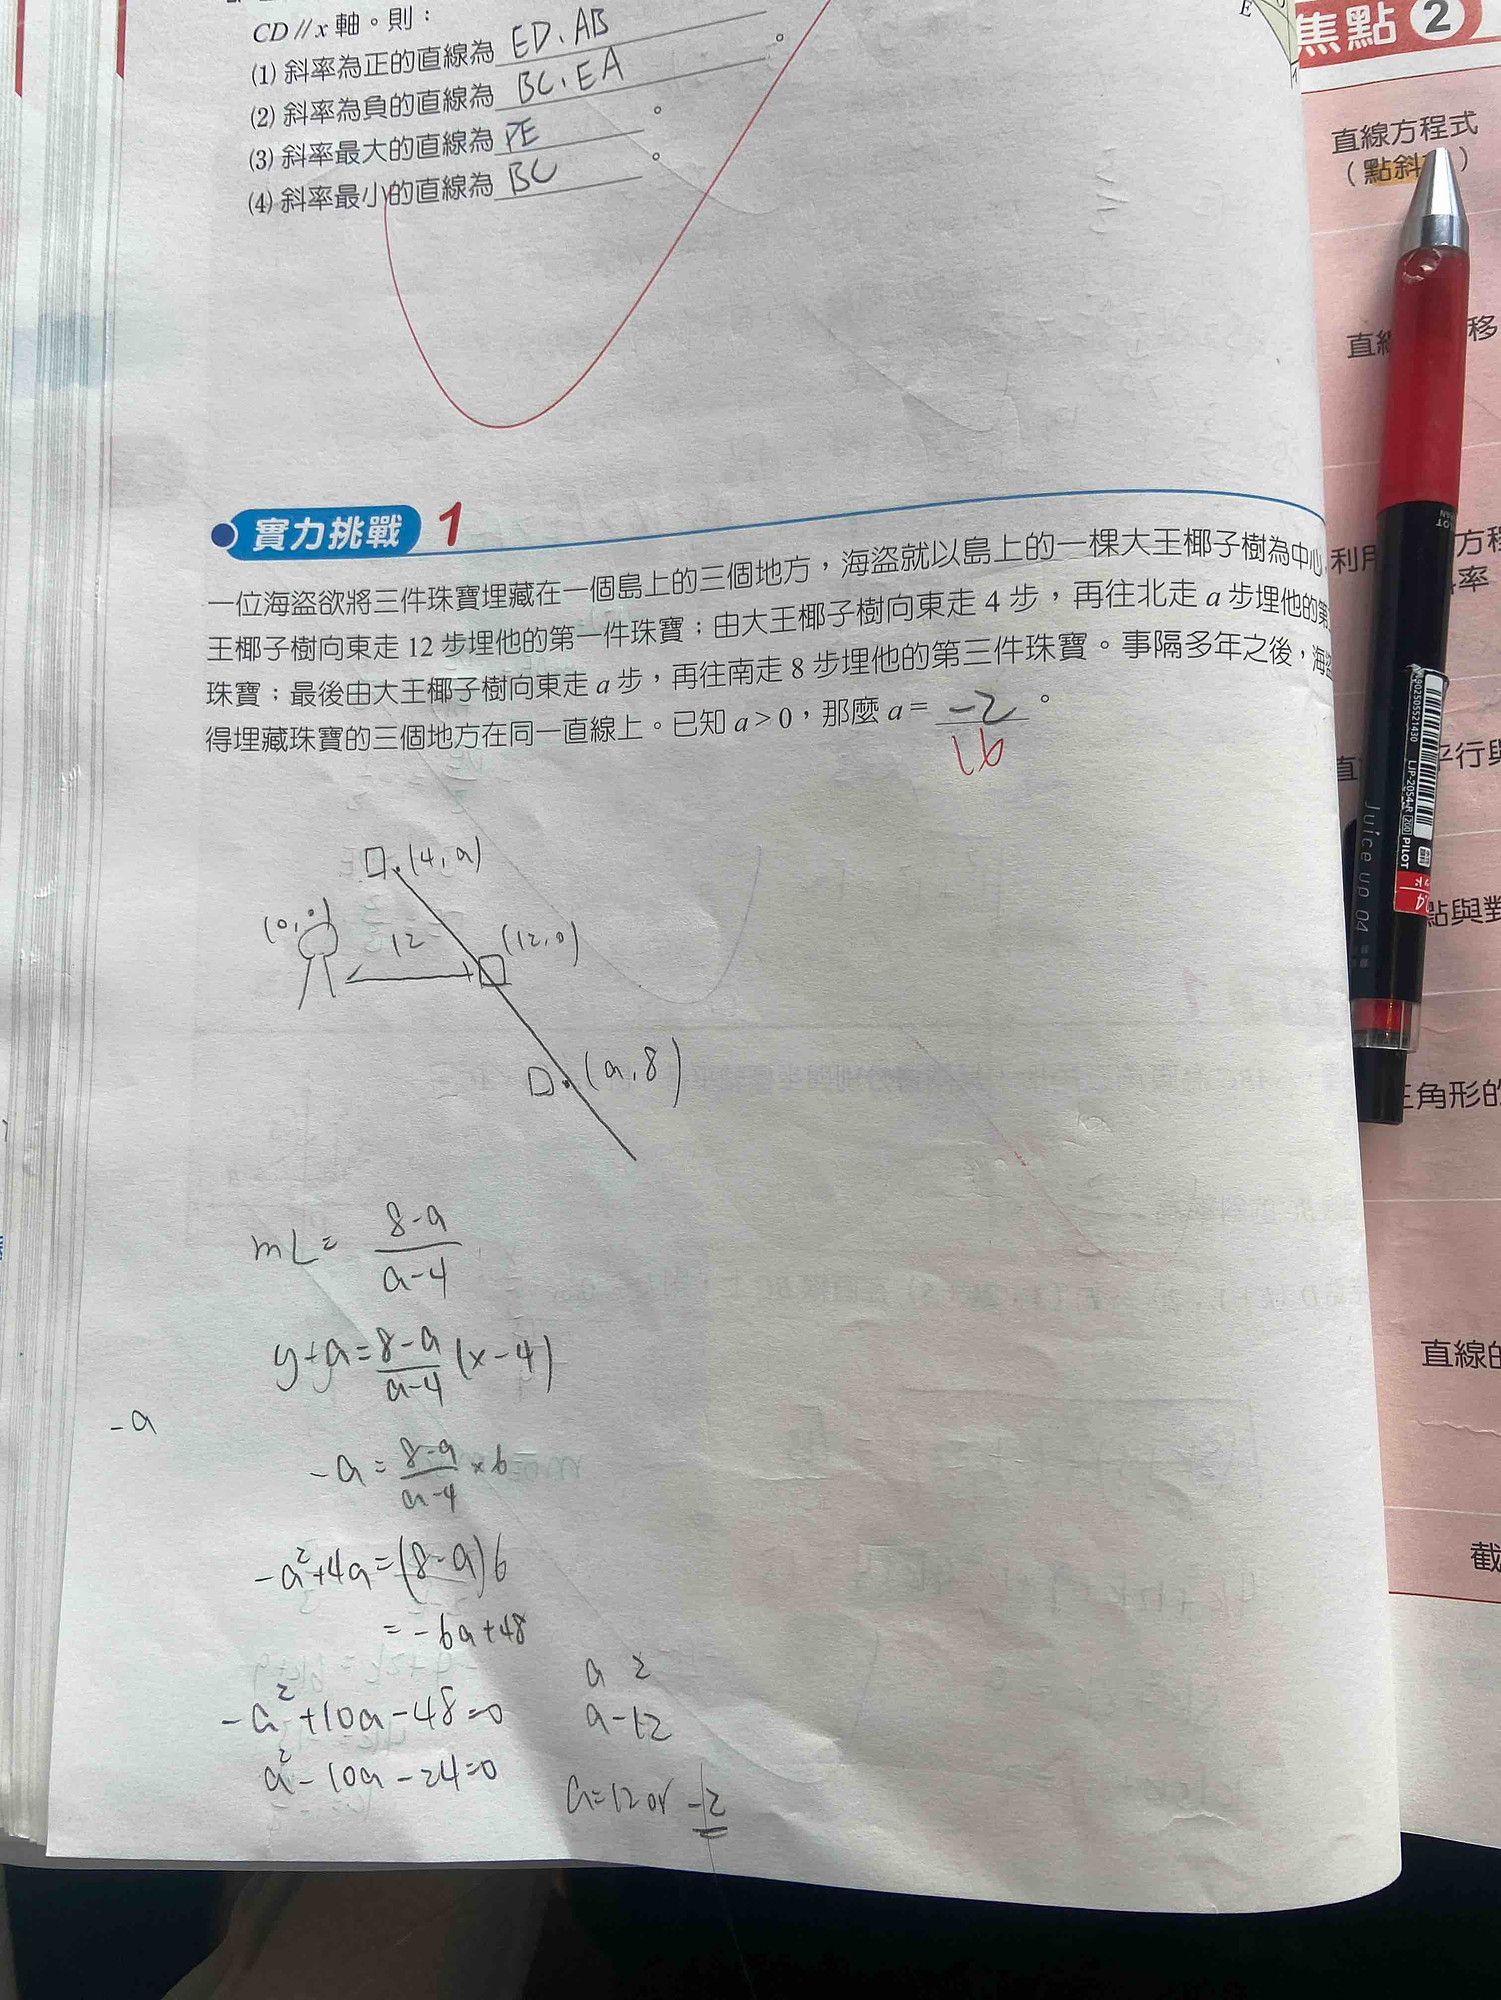 CD // x 軸。則：
(1) 斜率為正的直線為 ED、AB 。
(2) 斜率為負的直線為 BC、EA 。
(3) 斜率最大的直線為 DE 。
(4) 斜率最小的直線為 BC 。
實力挑戰 1
一位海盜欲將三件珠寶埋藏在一個島上的三個地方，海盜就以島上的一棵大王椰子樹為中心
王椰子樹向東走 12 步埋他的第一件珠寶；由大王椰子樹向東走 4 步，再往北走 a 步埋他的第
珠寶；最後由大王椰子樹向東走 a 步，再往南走 8 步埋他的第三件珠寶。事隔多年之後，海
得埋藏珠寶的三個地方在同一直線上。已知 a > 0，那麼 a = -2 。
16
(4, a)
(0, 0)
12
(12, 0)
(a, 8)
mL = 8-a / a-4
y+a = 8-a / a-4 (x-4)
-a
-a = 8-a / a-4 × 6
-a²+4a = (8-a)6
= -6a+48
-a²+10a-48=0
a²-10a-24=0
a 2
a -12
a=12 or -2
E
焦點 2
直線方程式
(點斜 )
移
利用
方程
率
平行與
點與對
三角形的
直線的
截
4902505521430
LJP-20S4-R
PILOT
Juice up 04